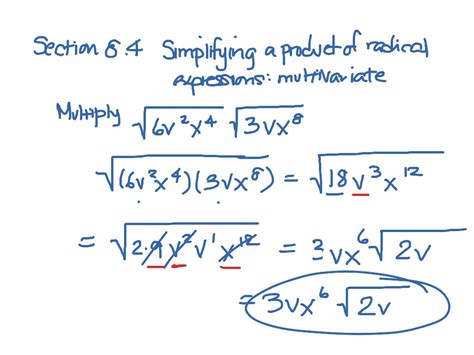 Section 8.4 Simplifying a product of radical
expressions: multivariate
Multiply √(6v²x⁴) √(3vx⁸)
√((6v²x⁴)(3vx⁸)) = √(18v³x¹²)
= √(2·9v²v¹x¹²) = 3vx⁶√(2v)
= 3vx⁶√(2v)